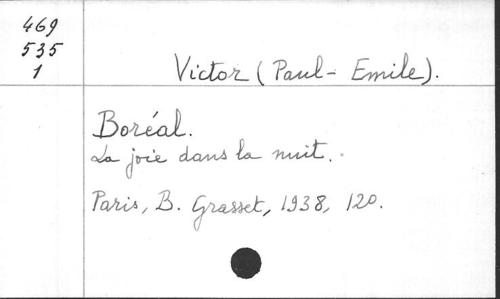 469
535
1
Victor (Paul-Emile).
Boréal.
La joie dans la nuit.
Paris, B. Grasset, 1938, 12o.